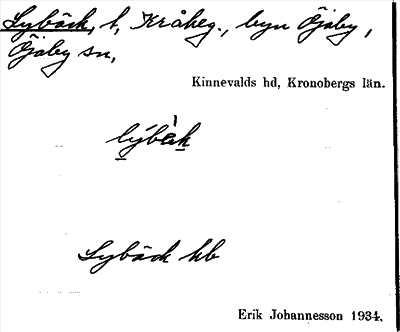 Lybäck, l, Kråkeg., byn Öjaby,
Öjaby sn,
Kinnevalds hd, Kronobergs län.
lýbàk
Lybäck hb
Erik Johannesson 1934.